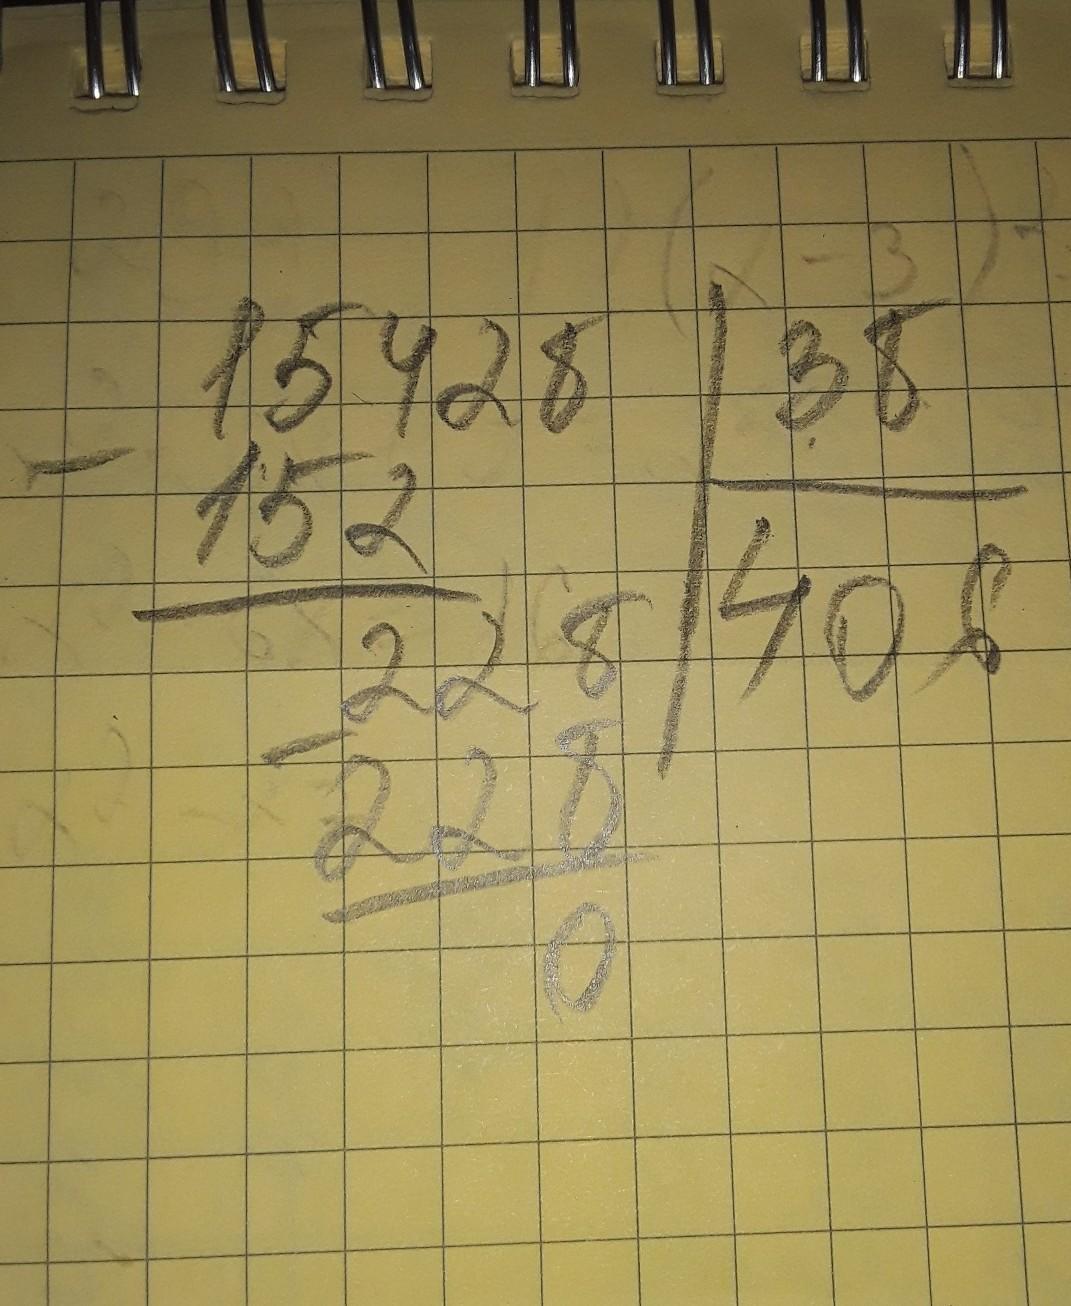 15428 38
- 152 408
228
- 228
0